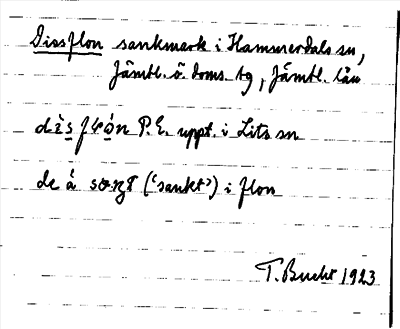 Dissflon sankmark i Hammerdals sn,
Jämtl. ö. doms. tg, Jämtl. län
P.E. uppt. i Lits sn
de å ("sankt") i flon
T. Bucht 1923